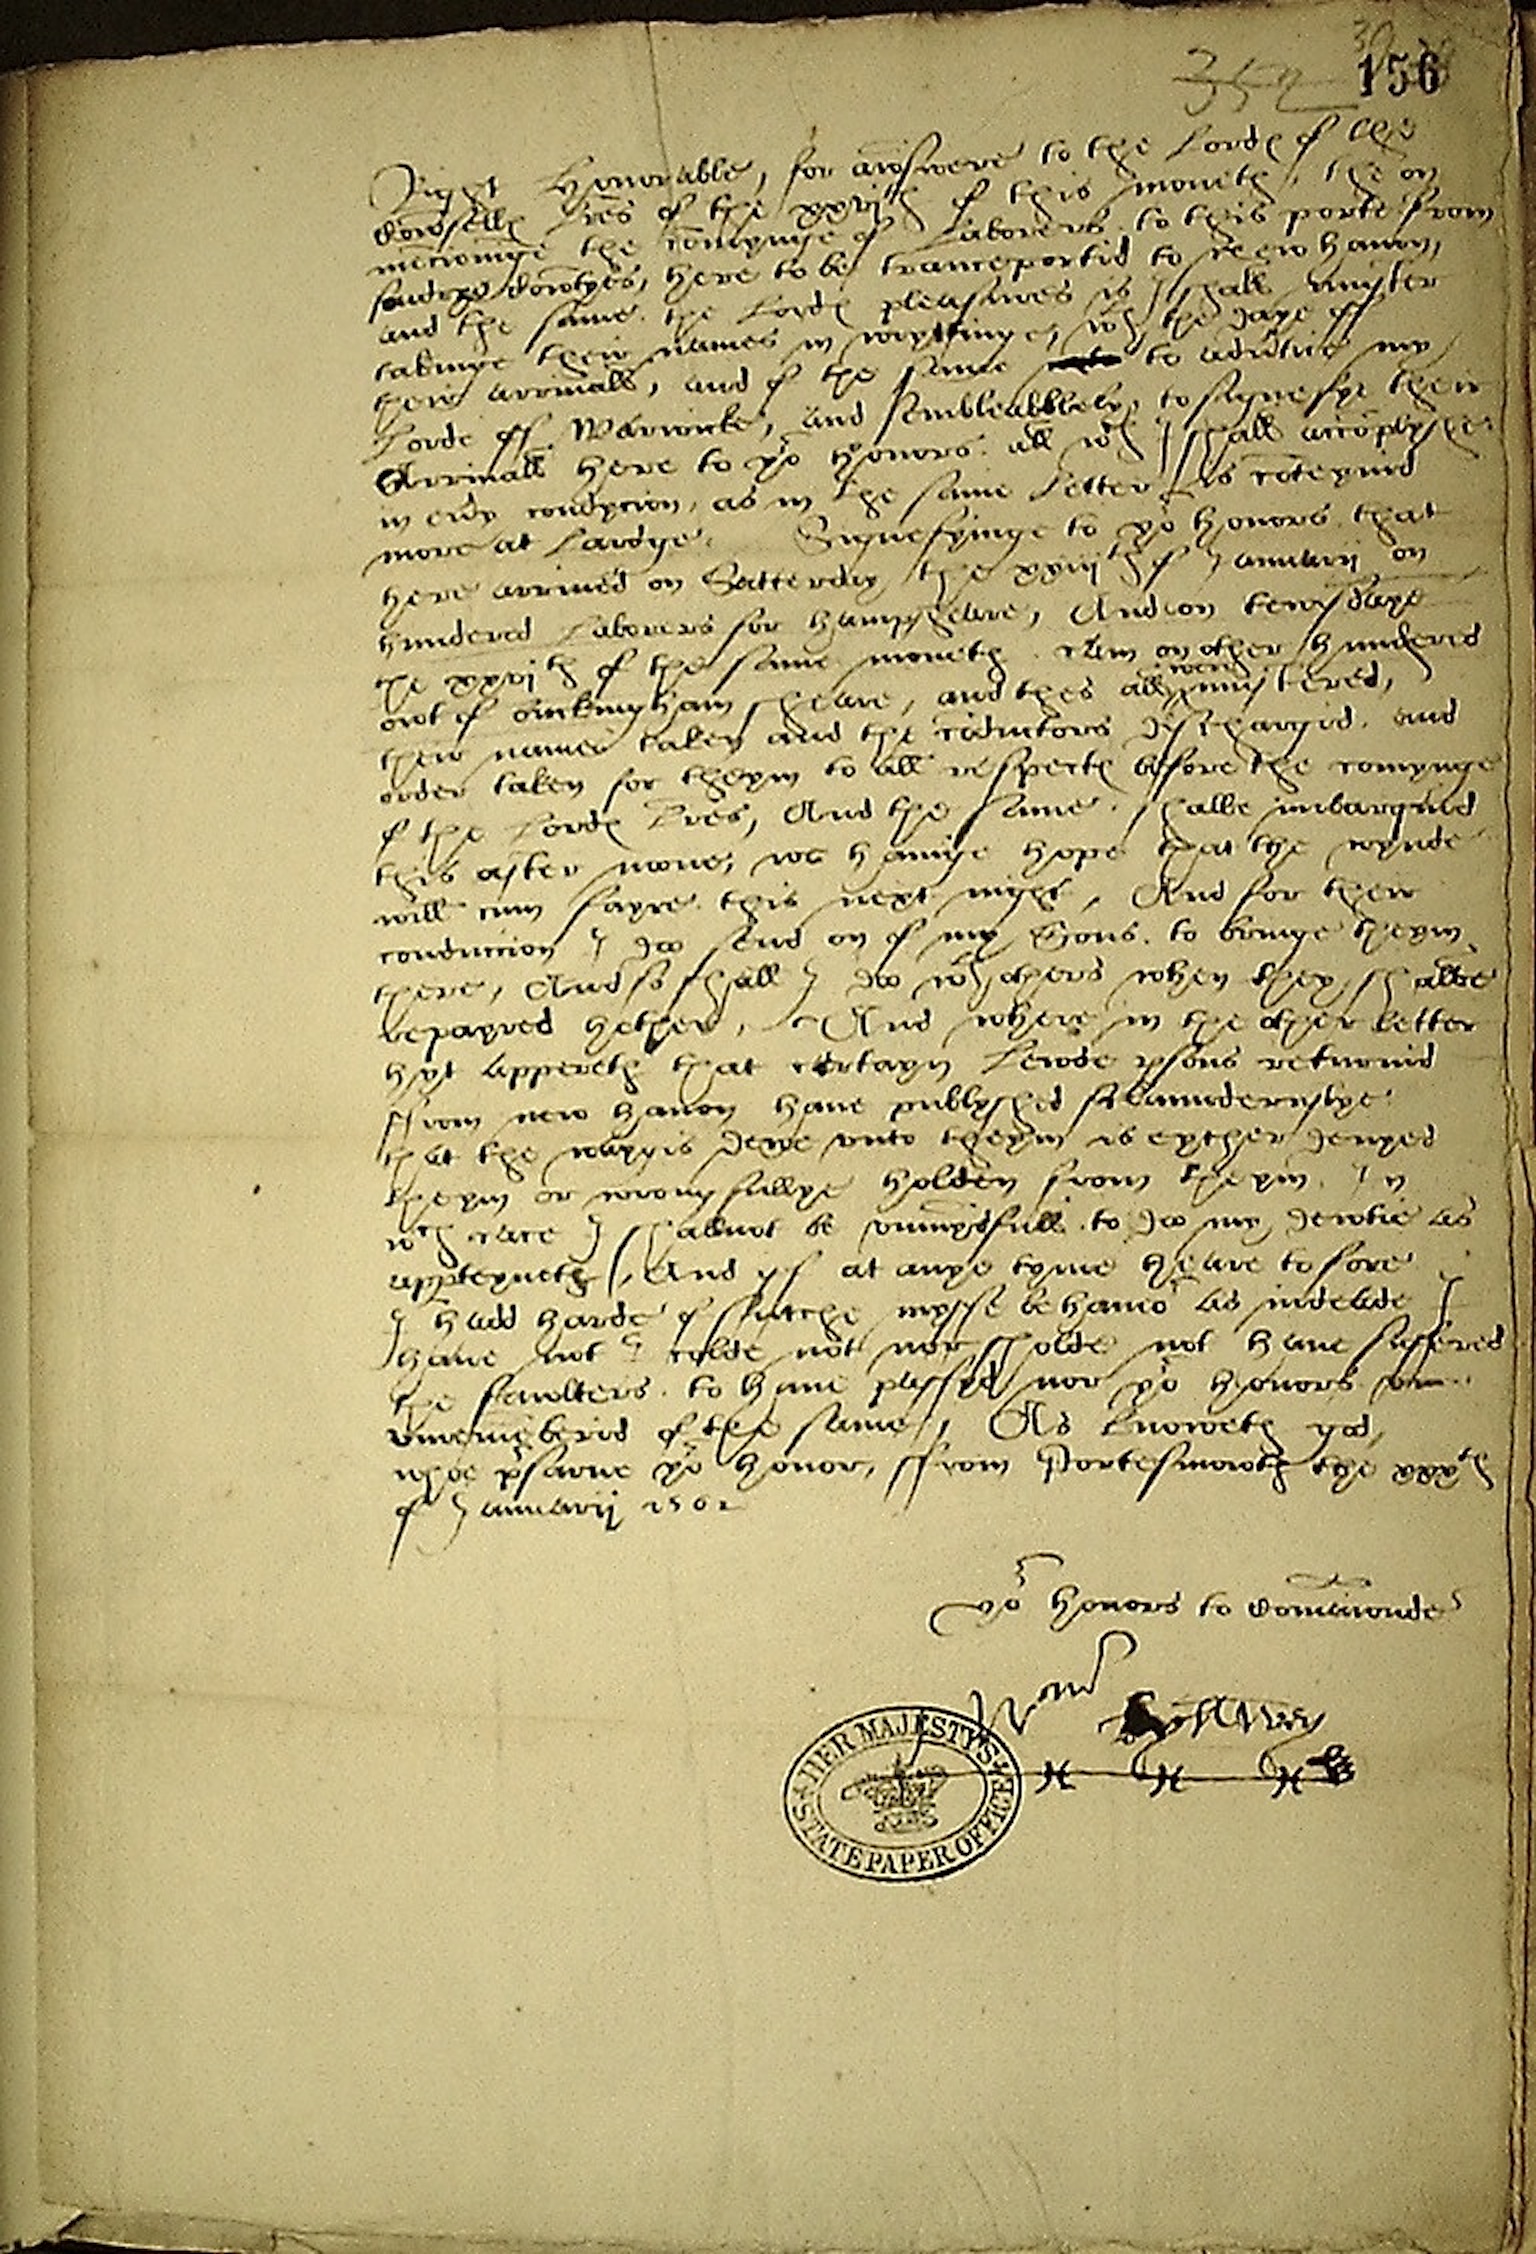 156
Right Honorable, for awnswere to the Lordes of the
Cownsells lres of the xxvith of this moneth, the on
mencioninge the comynge of Laborers to this porte from
sundrye Countyes, here to be transeportid to new havon,
and the same the Lordes pleasures is I shall muster
takinge their names in wrytinge, wth the daye of
their arrivall, and of the same to advertice my
Lorde of Warwicke, and semblabbely to signefye their
Arrivall here to yor Honors. all wch I shall accōplyshe
in evry condycion, as in the same Letter is cōteynid
more at Lardge. Signefyinge to yor honors that
here arrived on Satterday the xxiijth of Januarij on
hundered Laborers for hampsheare, And on tewisdaye
the xxvith of the same moneth cam on other hundered
owt of buckingham sheare, and thes all were mustered,
their names taken and the cōductors dischargid. and
order taken for theym to all respectes before the comynge
of the Lordes lres, And the same shalbe imbarquid
this after none, we havinge hope that the wynde
will cum fayre this next night, And for their
conduccion I do send on of my Sons to bringe theym
there, And so shall I do wth others when they shalbe
repayred hether, And where in the other Letter
hyt appereth that certayn Lewde psons returnid
ffrom new havon have publyshed sklaunderuslye
that the waygis dewe unto theym is eyther denyed
theym or wrongfullye holden from theym. In
wch case I shall not be unmyndfull to do my dewtie as
appteyneth, And yf at anye tyme heare tofore
I hadd harde of sutche mysse behavior as indeade I
have not I colde not nor sholde not have suffered
the fawlters to have passyd nor yor honors
unremēberid of the same, As knoweth god,
who preserve yor honor, ffrom Portesmowth the xxxth
of Januarij 1562
yor honors to Commaunde
HER MAJESTY'S
STATE PAPER OFFICE